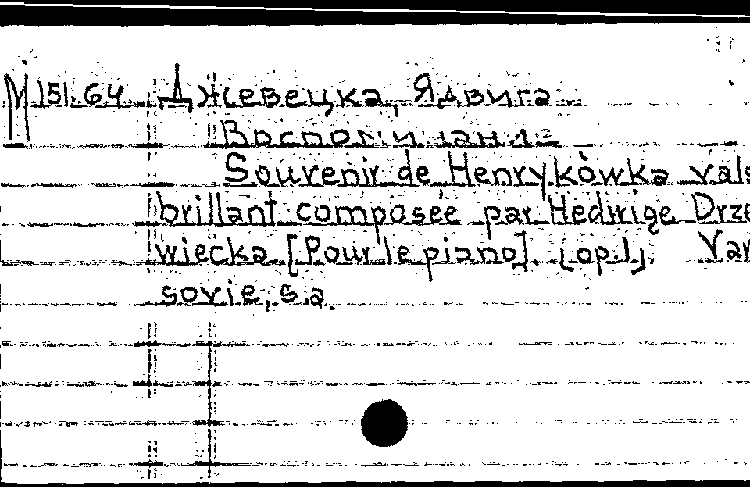 М 151.64 Джевецка, Ядвига
Воспоминание
Souvenir de Henrykòwka vals
brillant composée par Hedwige Drze
wiecka [Pour le piano]. [op.1]. Var
sovie, s.a.